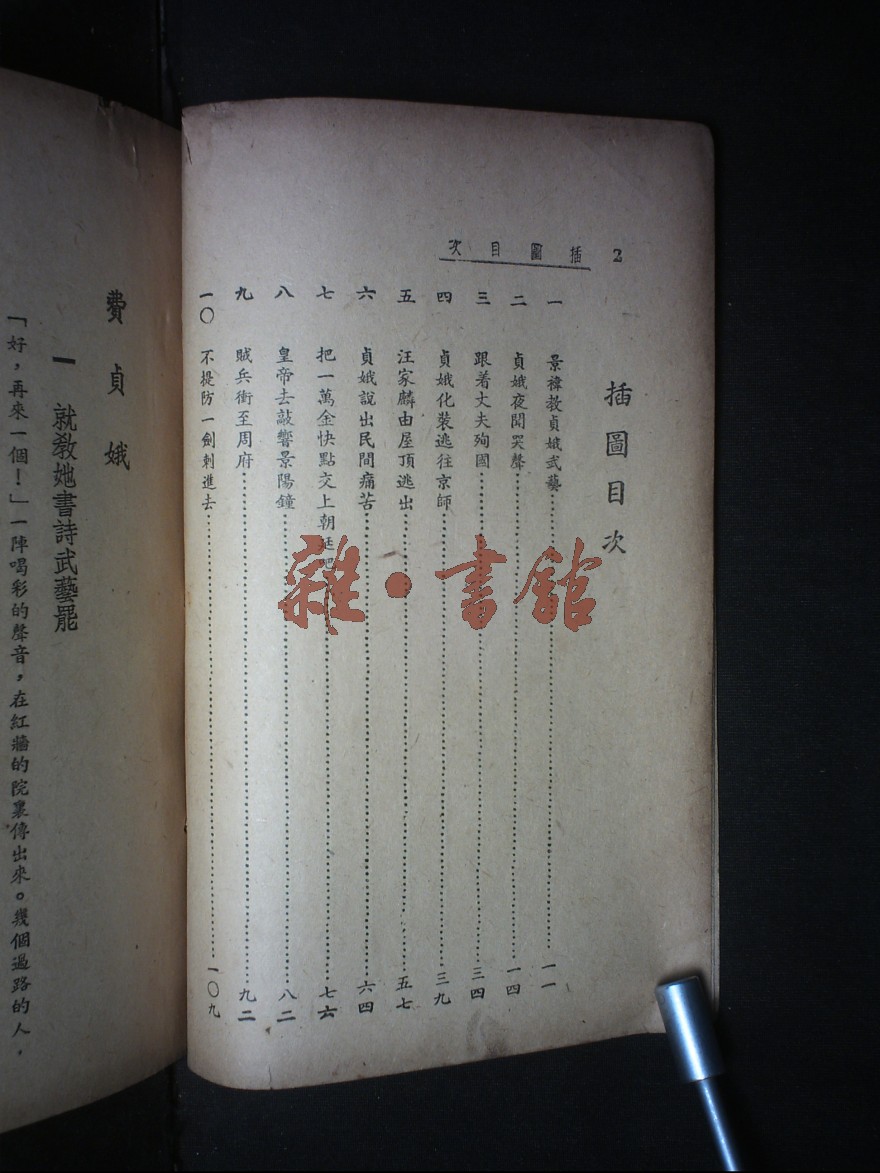 2 插圖目次
插圖目次
一 景褘教貞娥武藝 一一
二 貞娥夜聞哭聲 一四
三 跟着丈夫殉國 三四
四 貞娥化裝逃往京師 三九
五 汪家麟由屋頂逃出 五七
六 貞娥說出民間痛苦 六四
七 把一萬金快點交上朝廷吧 七六
八 皇帝去敲響景陽鐘 八二
九 賊兵衝至周府 九二
一〇 不提防一劍刺進去 一〇九
雜·書館
費貞娥
一 就敎她書詩武藝罷
「好，再來一個！」一陣喝彩的聲音，在紅牆的院裏傳出來。幾個過路的人，